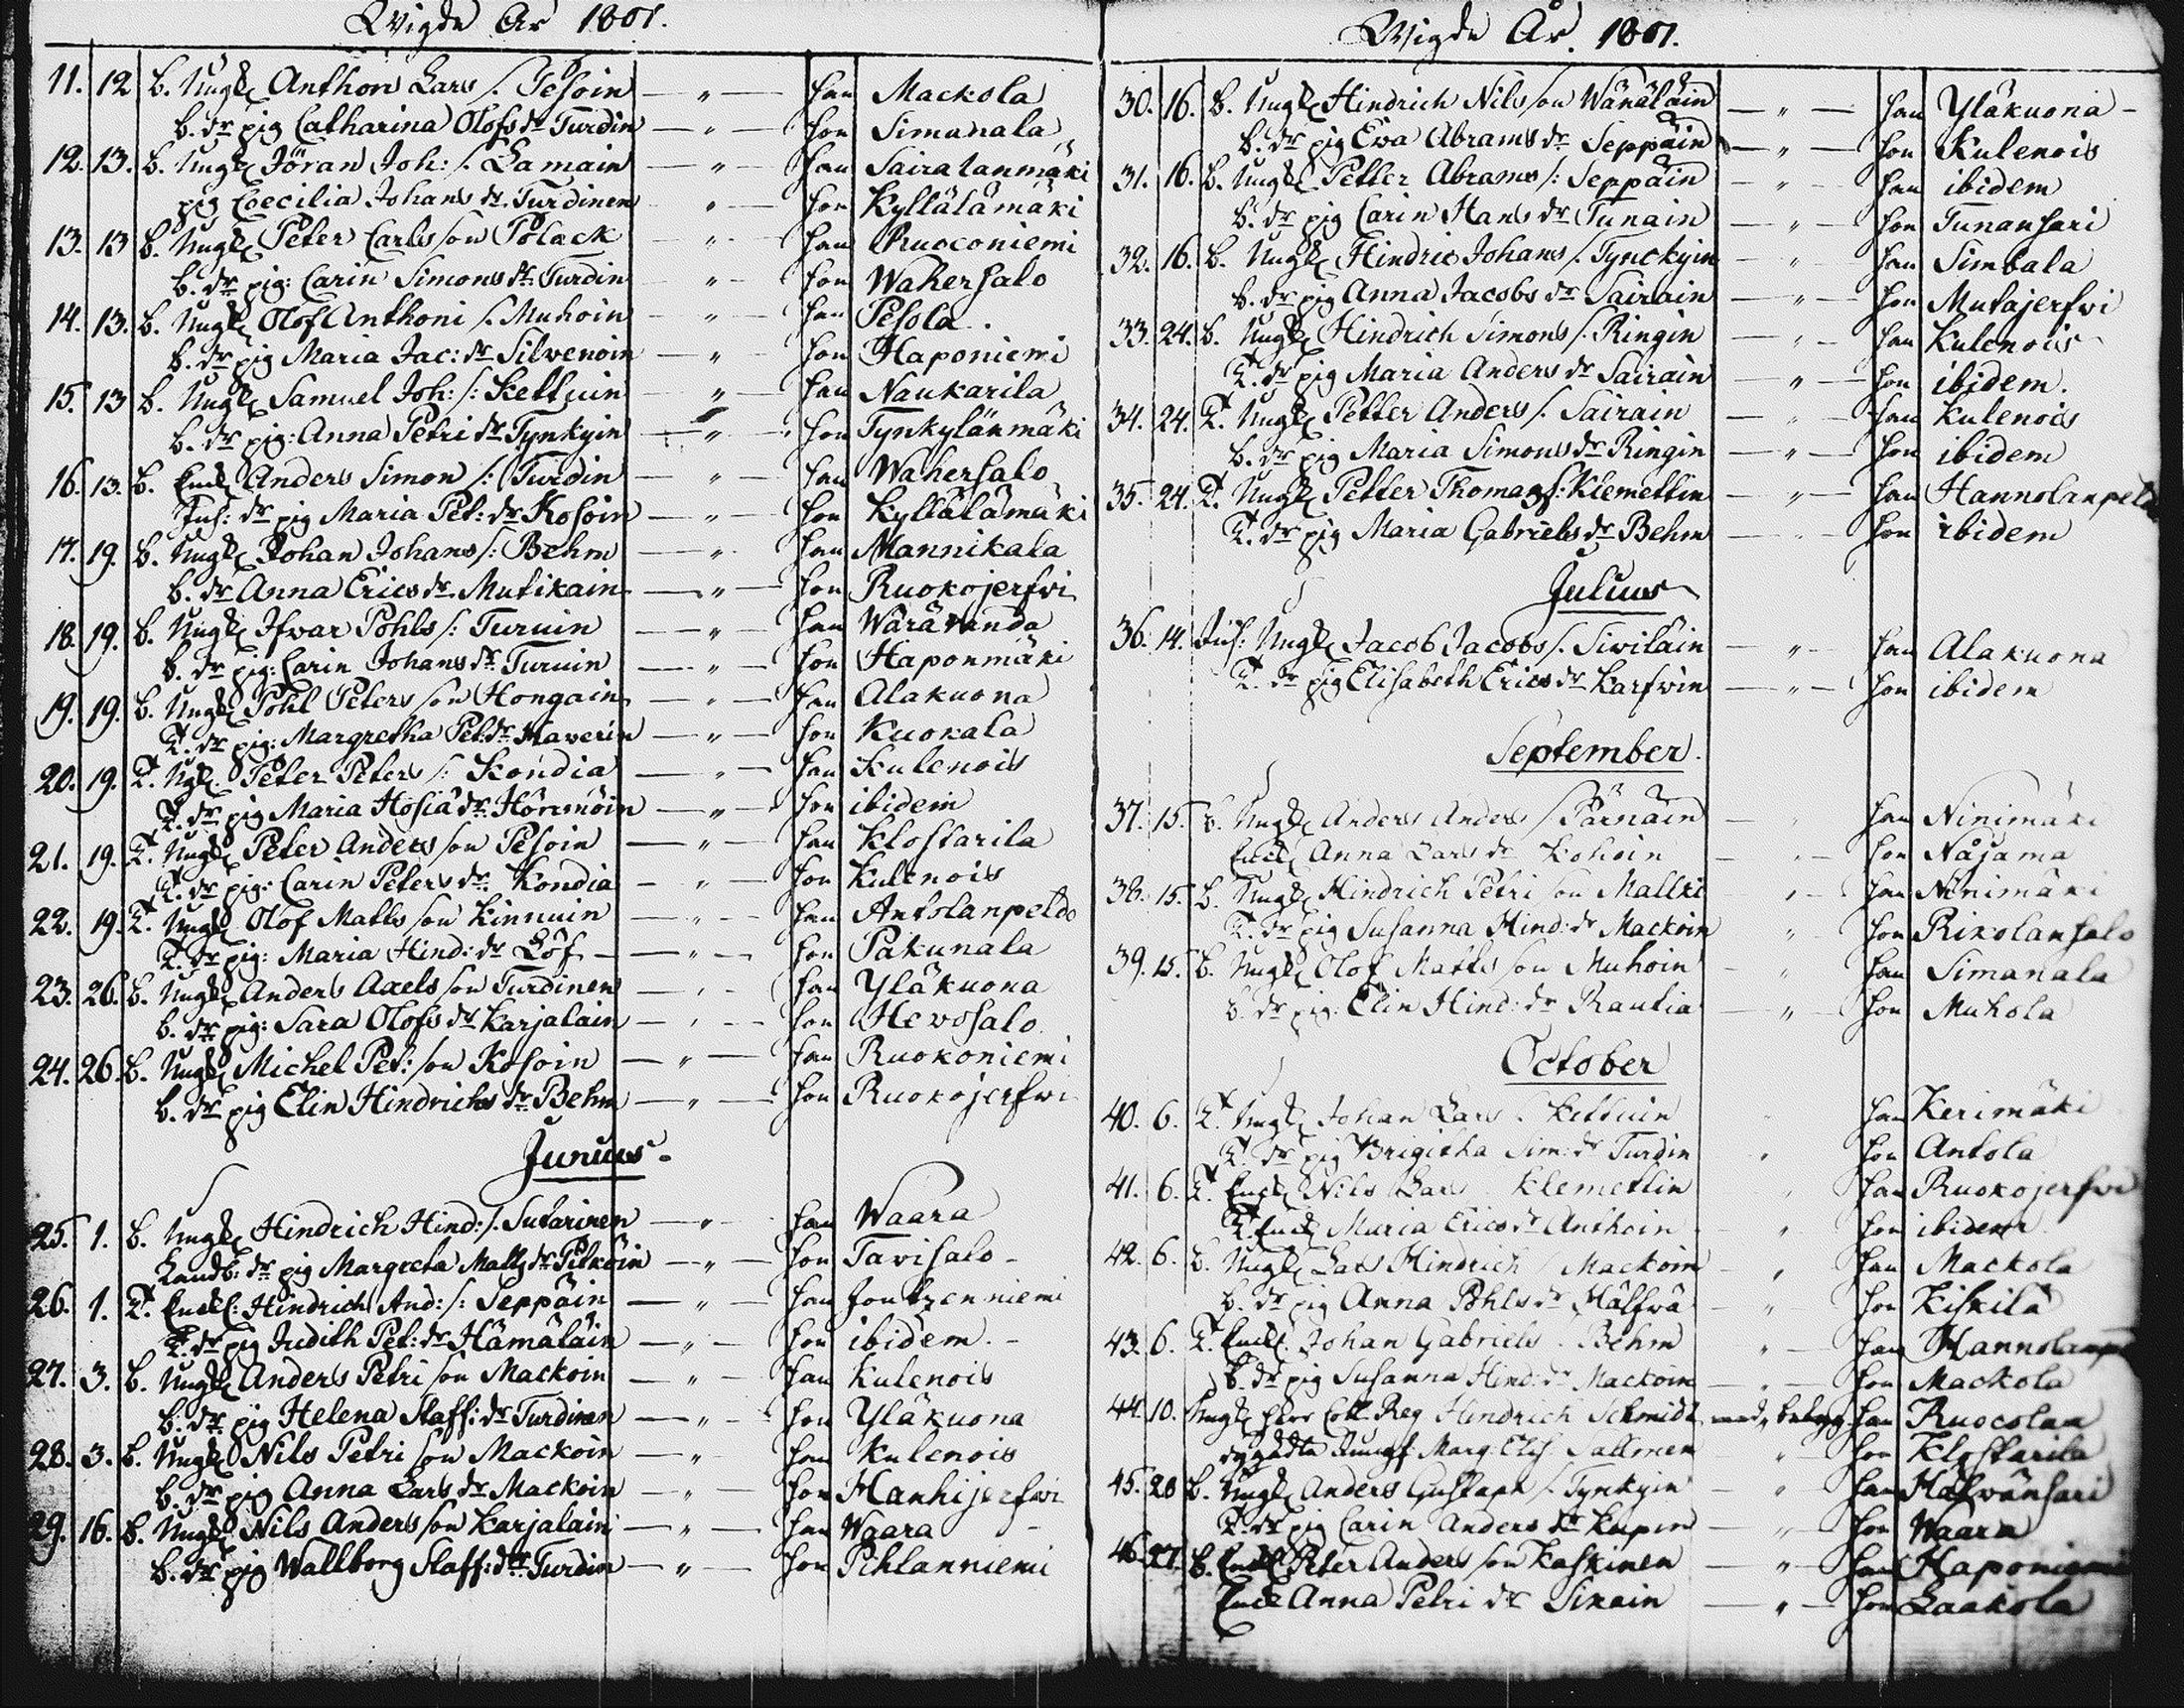 Wigde År 1801.
11. 12 B. Ungk Anthon Lars /: Pesoin — " — han Mackola
B. dr pig Catharina Olofs dr Turdin — " — hon Simanala
12. 13. B. Ungk Jöran Joh: /: Lamain — " — han Sairalanmäki
pig Coecilia Johans dr Turdinen " — hon Kyllälämäki
13. 13 B. Ungk Peter Carlsson Polack — " — han Ruoconiemi
B. dr pig: Carin Simons dr Turdin — " — hon Wahersalo
14. 13. B. Ungk Olof Anthoni /: Muhoin — " — han Pesola.
B. dr pig Maria Jac: dr Silvenoin — " — hon Haponiemi
15. 13 B. Ungk Samuel Joh: /: Kettuin — " — han Naukarila
B. dr pig: Anna Petri dr Tynkyin — " — hon Tynkylänmäki
16. 13. B. Enkl Anders Simon /: Turdin — " — han Wahersalo
Inh: dr pig Maria Pet: dr Kosoin — " — hon Kyllälämäki
17. 19. B. Ungk Johan Johans /: Behm — " — han Mannikala
B. dr Anna Erics dr Mutikain — " — hon Ruokojerfvi
18. 19. B. Ungk Ifvar Pohls /: Turuin — " — han Wäräranda
B. dr pig: Carin Johans dr Turuin — " — hon Haponmäki
19. 19. B. Ungk Pohl Peters son Hongain — " — han Alakuona
T. dr pig: Margretha Pet: dr Haverin — " — hon Kuokala
20. 19. T. Ugk. Peter Peters /: Kondia — " — han Kulenois
T. dr pig Maria Hosia dr Hörsmöin — " — hon ibidem
21. 19. T. Ungk Peter Anders son Pesoin — " — han Klostarila
T. dr pig: Carin Peters dr Kondia — " — hon Kulenois
22. 19. T. Ungk Olof Matts son Kinnuin — " — han Antolanpeldo
T. dr pig: Maria Hind: dr Löf — " — hon Pakunala
23. 26. B. Ungk Anders Axels son Turdinen — " — han Yläkuona
B. dr pig: Sara Olofs dr Karjalain — " — hon Hevosalo
24. 26 B. Ungk Michel Pet: son Kosoin — " — han Ruokoniemi
B. dr pig Elin Hindrichs dr Behm — " — hon Ruokojerfvi
Junius.
25. 1. B. Ungk Hindrich Hind: /: Sutarinen — " — han Waara
Landb: dr pig Margreta Matts dr Pitköin — " — hon Tavisalo
26. 1. T. Enkl: Hindrich And: /: Seppäin — " — han Joutzenniemi
T. dr pig Judith Pet: dr Hämäläin — " — hon ibidem.
27. 3. B. Ungk Anders Petri son Mackoin — " — han Kulenois
B: dr pig Helena Staff: dr Turdinen — " — hon Yläkuona
28. 3. B. Ungk Nils Petri son Mackoin — " — han Kulenois
B. dr pig Anna Lars dr Mackoin — " — hon Hanhijerfvi
29. 16. B. Ungk Nils Anders son Karjalain — " — han Waara
B. dr pig Wallborg Staff: dr Turdin — " — hon Pihlanniemi
Wigde År 1801.
30. 16. B. Ungk Hindrich Nils son Wänäläin — " — han Yläkuona
B. dr pig Ewa Abrams dr Seppäin — " — hon Kulenois
31. 16. B. Ungk Petter Abrams /: Seppäin — " — han ibidem
B. dr pig Carin Hans dr Tunain — " — hon Tunansari
32. 16. B. Ungk Hindric Johans /: Tynckyin — " — han Simbala
B. dr pig Anna Jacobs dr Sairain — " — hon Mutajerfvi
33. 24. B. Ungk Hindrich Simons /: Ringin — " — han Kulenois
T. dr pig Maria Anders dr Sairain — " — hon ibidem.
34. 24. T. Ungk Petter Anders /: Sairain — " — han Kulenois
B. dr pig Maria Simons dr Ringin — " — hon ibidem
35. 24. T. Ungk Petter Thomas /: Klemettin — " — han Hannolanpeld
T. dr pig Maria Gabriels dr Behm — " — hon ibidem
Julius
36. 14. Inh: Ungk Jacob Jacobs /: Siviläin — " — han Alakuona
T. dr pig Elisabeth Erics dr Karfvin — " — hon ibidem
September.
37. 15. B. Ungk Anders Anders /: Pärnäin — " han Ninimäki
Enkl Anna Lars dr Kohoin — " — hon Näjama
38. 15. B. Ungk Hindrich Petri son Mallki " — han Ninimäki
T. dr pig Susanna Hind: dr Mackoin " hon Rikolansalo
39. 15. B. Ungk Olof Matts son Muhoin — " han Simanala
B. dr pig: Elin Hind: dr Rautia — " — hon Muhola
October
40. 6. T. Ungk Johan Lars /: Kettuin " han Kerimäki
T. dr pig Brigitha Sim: dr Turdin " hon Antola
41. 6. T. Enkl Nils Lars /: Klemettin " han Ruokojerfvi
T. Enck Maria Erics dr Anthoin " hon ibidem
42. 6. B. Ungk Lars Hindrich /: Mackoin — " han Mackola
B. dr pig Anna Pohls dr Hälfvä — " hon Kiskilä
43. 6. T. Enkl. Johan Gabriels /: Behm " — han Hannolanp
B. dr pig Susanna Hind: dr Mackoin — " — hon Mackola
44. 10. Ungk Herr Coll. Reg Hendrich Schmidt med betyg han Ruocolax
Jungf Marg: Elis: Sallmen " — hon Klostarila
45. 20 B. Ungk Anders Gustaph /: Tynkyin — " han Hälfvänsari
T. dr pig Carin Anders dr Kupin — " — hon Waara
46. 27. B. Enkl Peter Anders son Kaskinen — " — han Haponiemi
Enck Anna Petri dr Sikain — " — hon Laakola